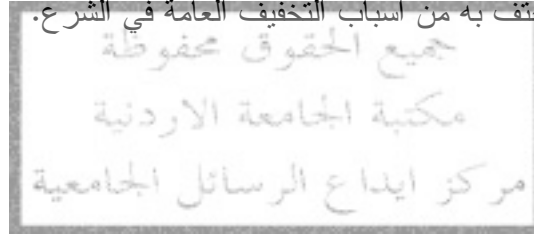 به من اسباب التخفيف العامة في الشرع.
جميع الحقوق محفوظة
مكتبة الجامعة الاردنية
مركز ايداع الرسائل الجامعية